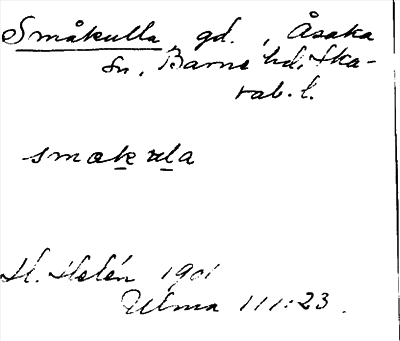 Småkulla gd., Åsaka
sn, Barne hd, Ska-
rab. l.
smakula
H. Helén 1901
Ulma 111:23.